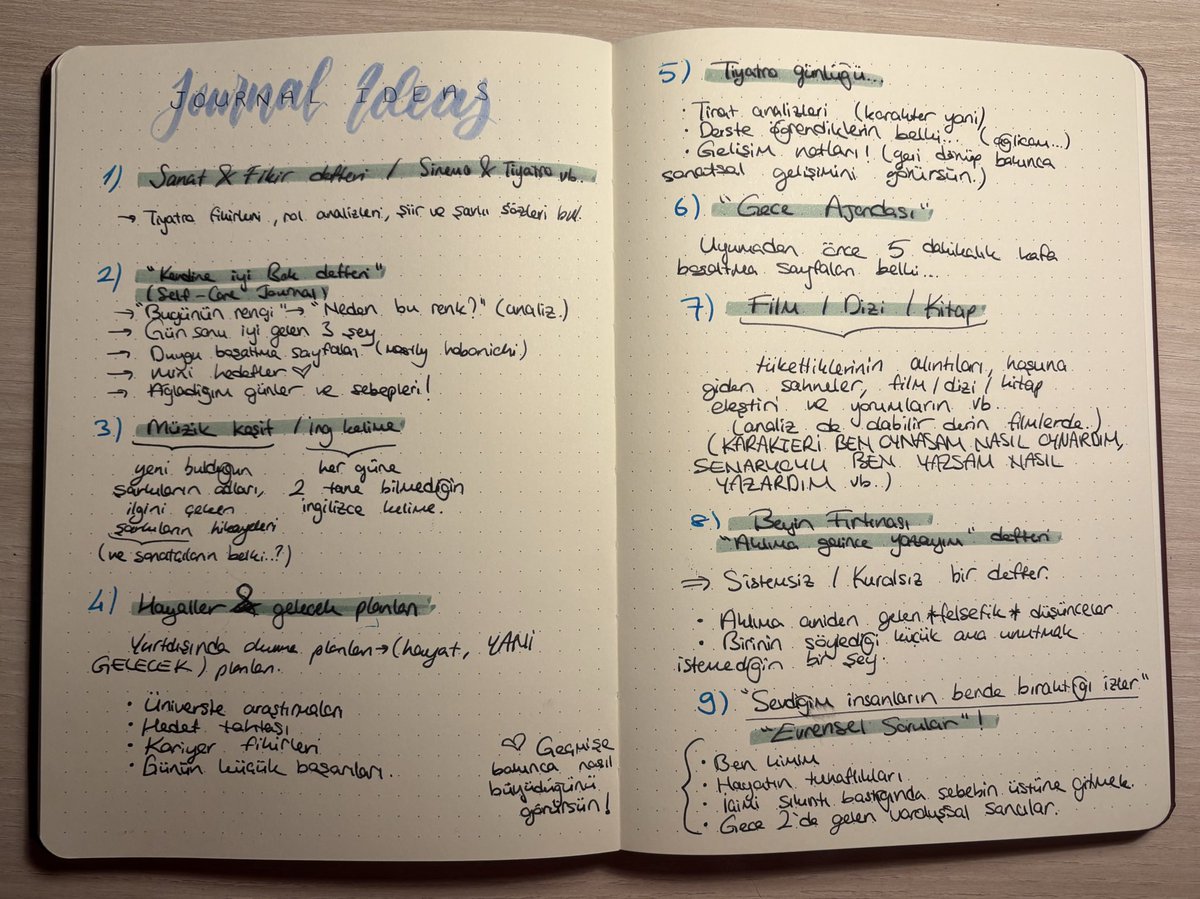 Journal Ideas
JOURNAL IDEAS
1) Sanat & Fikir defteri / Sinema & Tiyatro vb.
→ Tiyatro fikirleri, rol analizleri, şiir ve şarkı sözleri bul.
2) "Kendine iyi Bak defteri"
(Self-Care Journal)
→ "Bugünün rengi" → "Neden bu renk?" (analiz.)
→ Gün sonu iyi gelen 3 şey
→ Duygu boşaltma sayfaları (hobonichi)
→ mini hedefler ♡
→ Ağladığım günler ve sebepleri!
3) Müzik keşif / ing kelime
yeni bulduğun
şarkıların adları,
ilgini çeken
şarkıların hikayeleri
(ve sanatçıların belki..?)
her güne
2 tane bilmediğin
ingilizce kelime.
4) Hayaller & gelecek planları
Yurtdışında okuma planları → (hayat, YANİ
GELECEK) planları.
• Üniversite araştırmaları
• Hedef tahtası
• Kariyer fikirleri
• Günün küçük başarıları.
♡ Geçmişe
bakınca nasıl
büyüdüğünü
görürsün!
5) Tiyatro günlüğü...
• Tirat analizleri (karakter yani)
• Derste öğrendiklerin belki... (ağlicam...)
• Gelişim notları! (geri dönüp bakınca
sanatsal gelişimini görürsün.)
6) "Gece Ajandası"
Uyumadan önce 5 dakikalık kafa
boşaltma sayfaları belki...
7) Film / Dizi / Kitap
tükettiklerinin alıntıları, hoşuna
giden sahneler, film / dizi / kitap
eleştiri ve yorumların vb..
(analiz de olabilir derin filmlerde.)
(KARAKTERİ BEN OYNASAM NASIL OYNARDIM,
SENARYOYU BEN YAZSAM NASIL
YAZARDIM vb.)
8) Beyin Fırtınası
"Aklıma gelince yazayım" defteri
⇒ Sistemsiz / Kuralsız bir defter.
• Aklıma aniden gelen *felsefik* düşünceler
• Birinin söylediği küçük ama unutmak
istemediğin bir şey.
9) "Sevdiğim insanların bende bıraktığı izler"
"Evrensel Sorular"!
• Ben kimim
• Hayatın tuhaflıkları
• İçimi sıkıntı bastığında sebebin üstüne gitmek.
• Gece 2'de gelen varoluşsal sancılar.